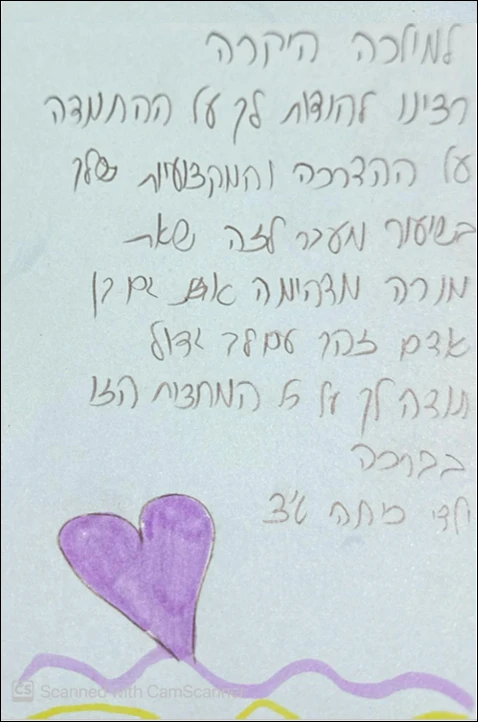 למילכה היקרה
רצינו להודות לך על ההתמדה
על ההדרכה והמקצועיות שלך
בשיעור מעבר לזה שאת
מורה מדהימה את גם כן
אדם זהב עם לב גדול
תודה לך על כל המחצית הזו
בברכה
ילדי כיתה ט'3
CS Scanned with CamScanner